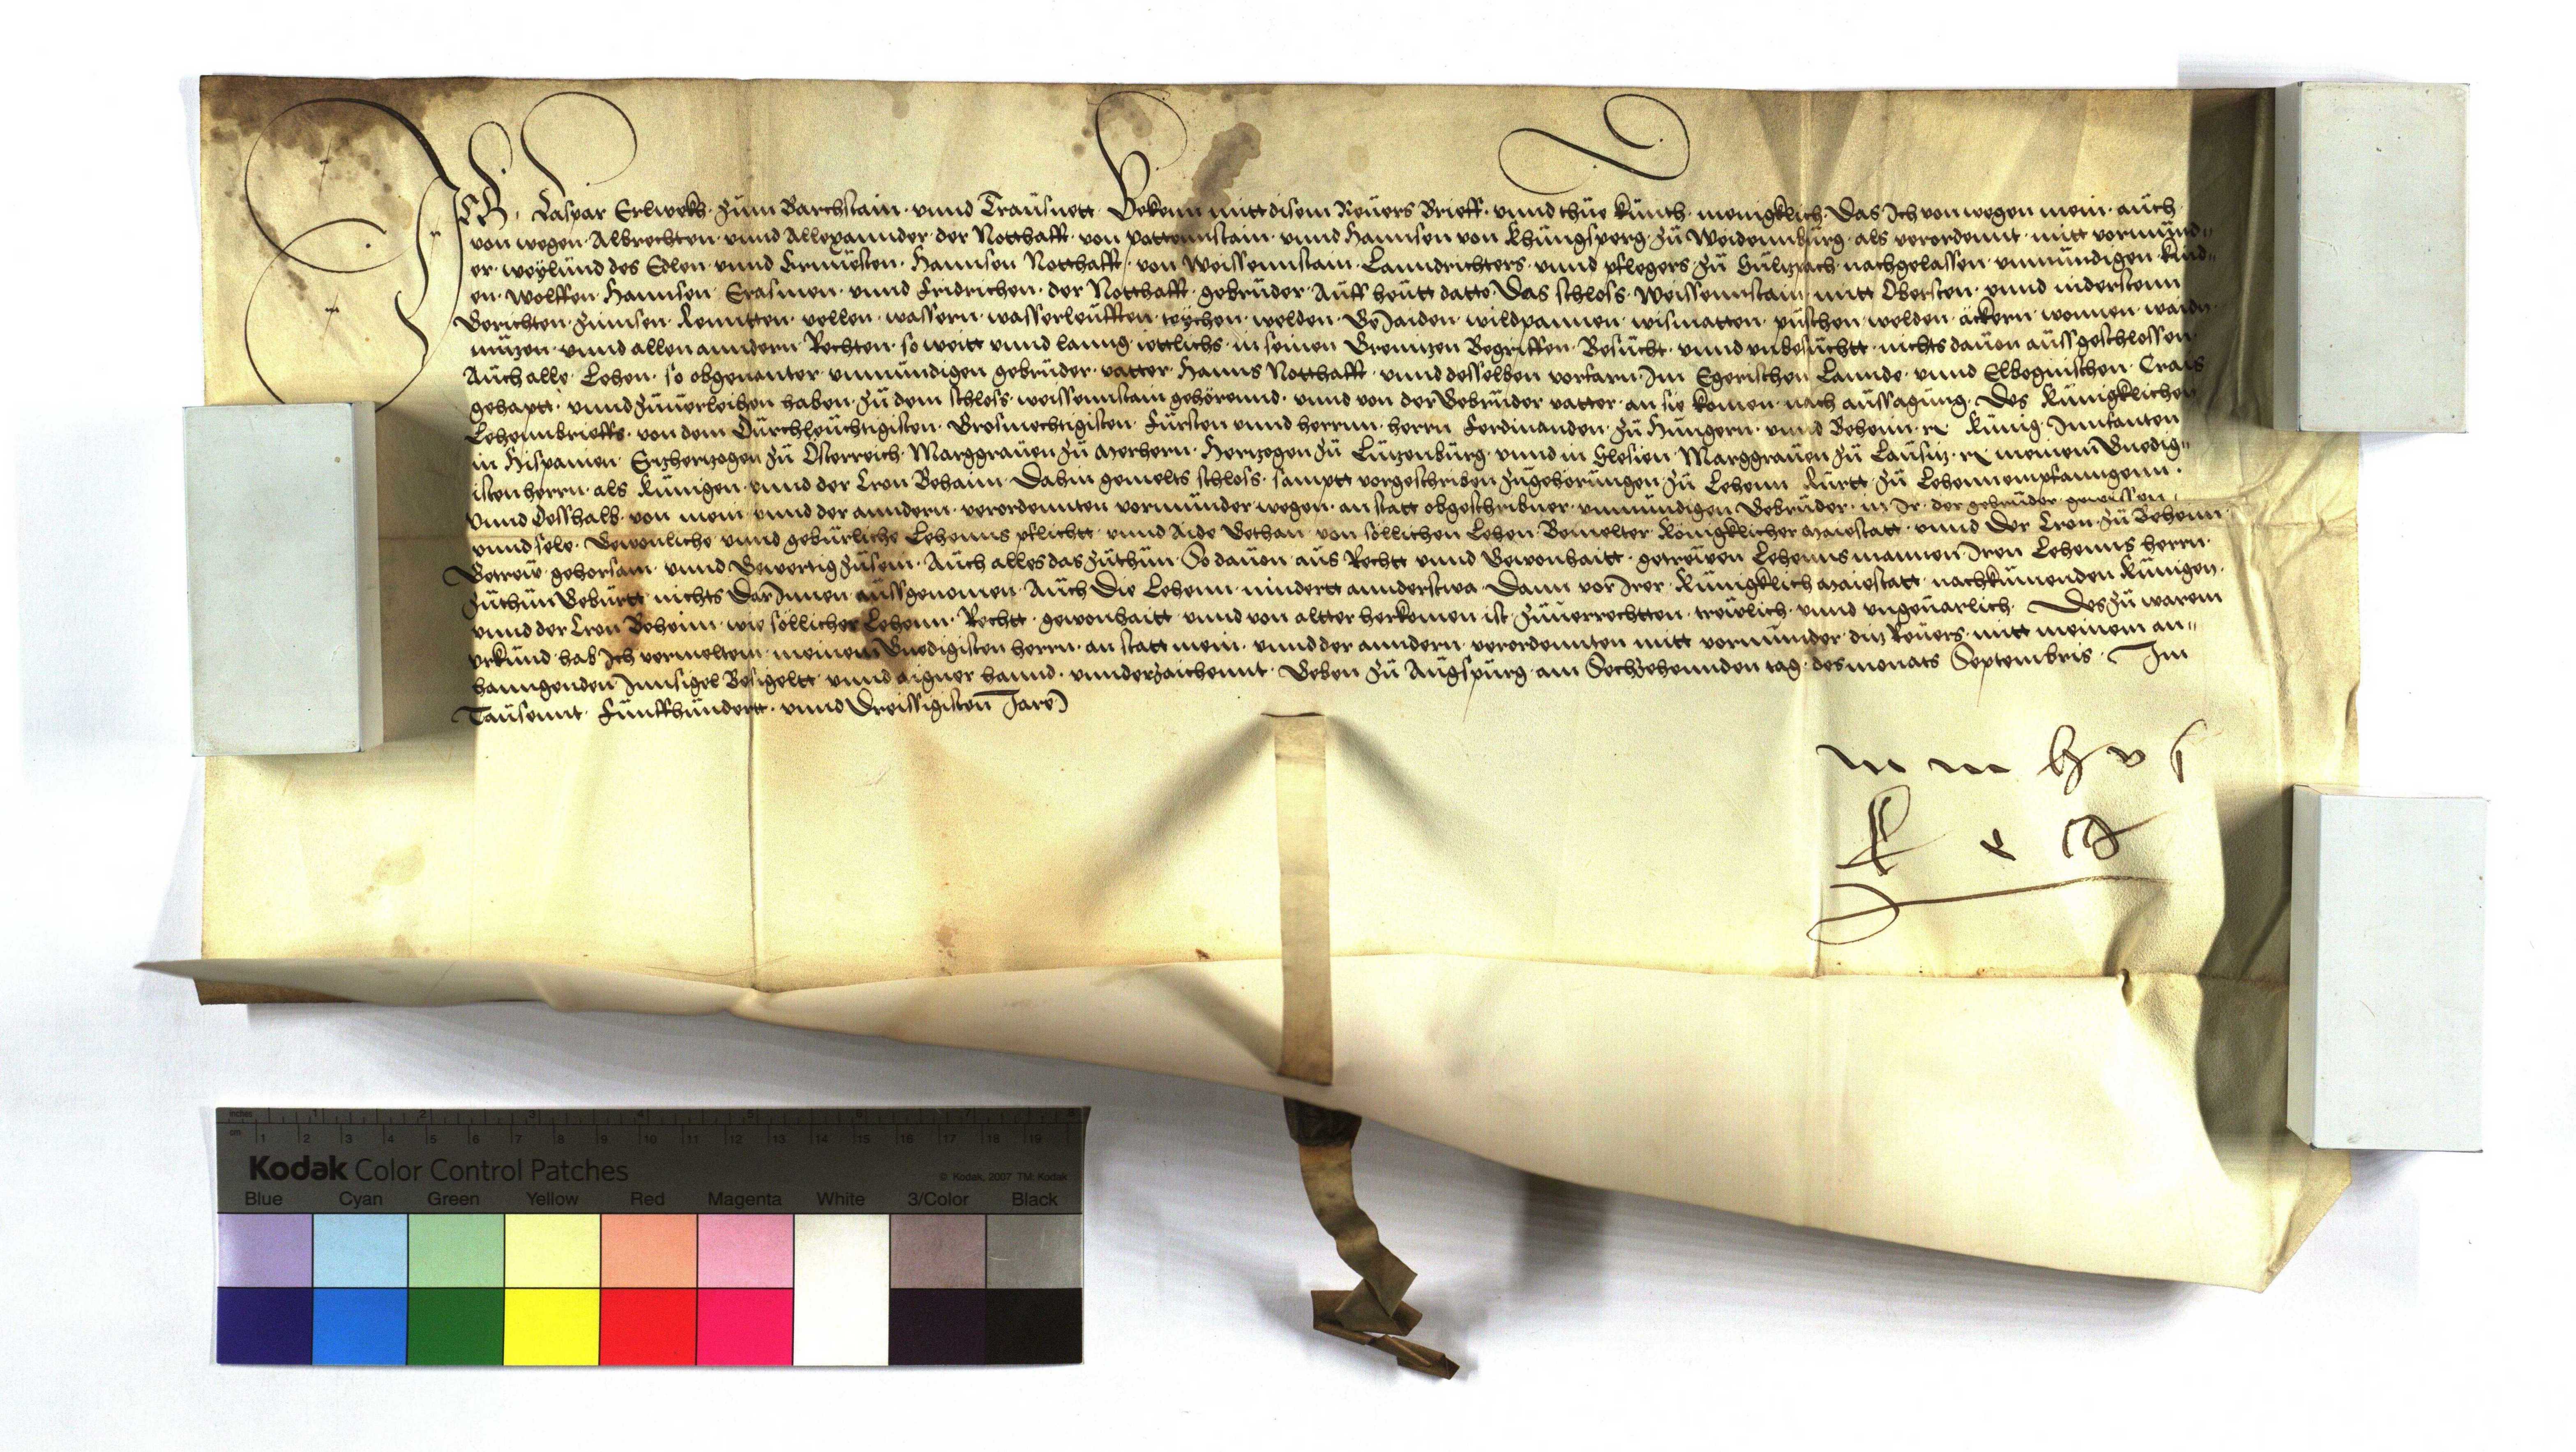 ICH Caspar Erlwekh zum Barchstain vnnd Trausnett Bekenn mitt disem Reuers Brieff vnnd thue kunth menigklich Das Ich von wegen mein auch
von wegen Albrechten vnnd Allexannder der Notthafft von pottennstain vnnd Hannsen von Khüngsperg zu Weidennburg als verordennt mitt vormund„
er weylund des Edlen vnnd Ernuesten Hannsen Notthafft von Weissennstain Lanndrichters vnnd pflegers zu Sultzpach nachgelassen vnmundigen kind„
en Wolffen Hannsen Erasmen vnnd Fridrichen der Notthafft gebruder Auff heutt datto Das schloss Weissennstain mitt Obersten vnnd niderstenn
Gerichten Zinnsen Renntten vellen wassern wasserleufften teychen welden Gejaiden wildpannen wismatten puschen welden äckern wonnen waidn
nutzen vnnd allen anndern Rechten so weitt vnnd lanng ittlichs in seinen Grenntzen Begriffen Besucht vnnd vnbesuchtt nichts dauon aussgeschlossen
Auch alle Lehen so obgenanter vnmundigen gebruder vatter Hanns Notthafft vnnd desselben vorfarn Im Egerischen Lannde vnnd Elbognischen Crais
gehaptt vnnd zuuerleihen haben zu dem schloss weissennstain gehörennd vnnd von der Gebruder vatter an sie komen nach aussagung Des Kunigklichen
Lehennbrieffs von dem Durchleuchtigisten Grosmechtigisten Fursten vnnd herrnn herrn Ferdinanden zu Hungern vnnd Behenn rc Kunig Innfanten
in Hispanien Ertzhertzogen zu Osterreich Marggrauen zu Merhern Hertzogen zu Lutzenburg vnnd in Slesien Marggrauen zu Lausitz rc meinem Gnedig„
isten herrn als Kunigen vnnd der Cron Behaim Dahin gemelts schloss samptt vorgeschriben zugehorungen zu Lehenn Rurtt zu Lehenn empfanngenn
Vnnd Desshalb von mein vnnd der anndern verordennten vormunder wegen an statt obgeschribner vnmundigen Gebruder in Ir der gebruder gewissen
vnnd sele Gewonliche vnnd geburliche Lehenns pflichtt vnnd Aide Gethan von sollichen Lehen Bemelter Königklicher Maiestatt vnnd Der Cron zu Behenn
Getrew gehorsam vnnd Gewertig zu sein Auch alles das zuthun So dauon aus Rechtt vnnd Gewonhaitt getrewen Lehenns mannen Iren Lehenns herrn
zuthun Geburtt nichts Darinnen aussgenomen Auch Die Lehenn nindertt annderstwa Dann vor Irer Kunigklich Maiestatt nachkumenden Kunigen
vnnd der Cron Behenn wie söllicher Lehenn Rechtt gewonhaitt vnnd von altter herkomen ist zuuerrechtten trewlich vnnd vngeuarlich Des zu warem
vrkund hab Ich vermeltem meinem Gnedigisten herrn an statt mein vnnd der anndern verordennten mitt vormunder ditz Reuers mitt meinem an„
hanngenden Innsigel Besigeltt vnnd aigner hannd vnnderzaichennt Geben zu Augspurg am Sechzehennden tag des monats Septembris Im
Tausennt Funffhundertt vnnd Dreissigisten Jare
inches 1 2 3 4 5 6 7 8
cm 1 2 3 4 5 6 7 8 9 10 11 12 13 14 15 16 17 18 19
Kodak Color Control Patches © Kodak, 2007 TM: Kodak
Blue Cyan Green Yellow Red Magenta White 3/Color Black